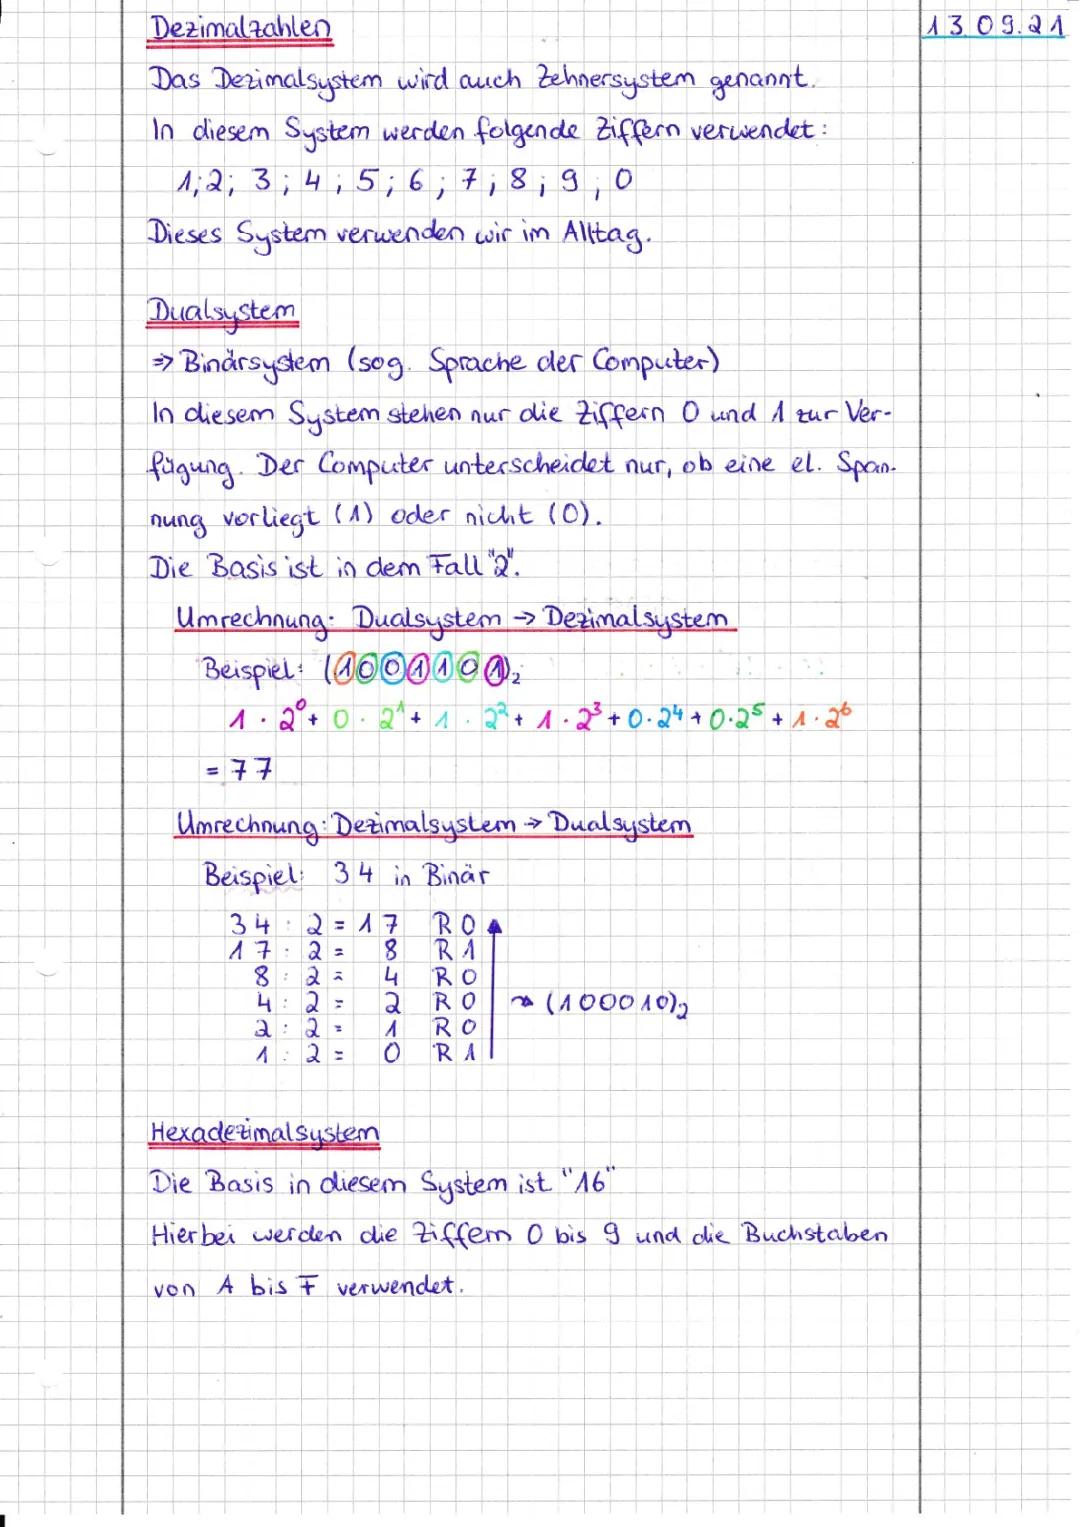 Dezimalzahlen
13.09.21
Das Dezimalsystem wird auch Zehnersystem genannt.
In diesem System werden folgende Ziffern verwendet:
1; 2; 3; 4; 5; 6; 7; 8; 9; 0
Dieses System verwenden wir im Alltag.
Dualsystem
⇒ Binärsystem (sog. Sprache der Computer)
In diesem System stehen nur die Ziffern 0 und 1 zur Ver-
fügung. Der Computer unterscheidet nur, ob eine el. Span-
nung vorliegt (1) oder nicht (0).
Die Basis ist in dem Fall "2".
Umrechnung: Dualsystem → Dezimalsystem
Beispiel: (1001101)₂
1 · 2⁰ + 0 · 2¹ + 1 · 2² + 1 · 2³ + 0 · 2⁴ + 0 · 2⁵ + 1 · 2⁶
= 77
Umrechnung: Dezimalsystem → Dualsystem
Beispiel: 34 in Binär
34 : 2 = 17 R 0
17 : 2 = 8 R 1
8 : 2 = 4 R 0
4 : 2 = 2 R 0 → (100010)₂
2 : 2 = 1 R 0
1 : 2 = 0 R 1
Hexadezimalsystem
Die Basis in diesem System ist "16"
Hierbei werden die Ziffern 0 bis 9 und die Buchstaben
von A bis F verwendet.